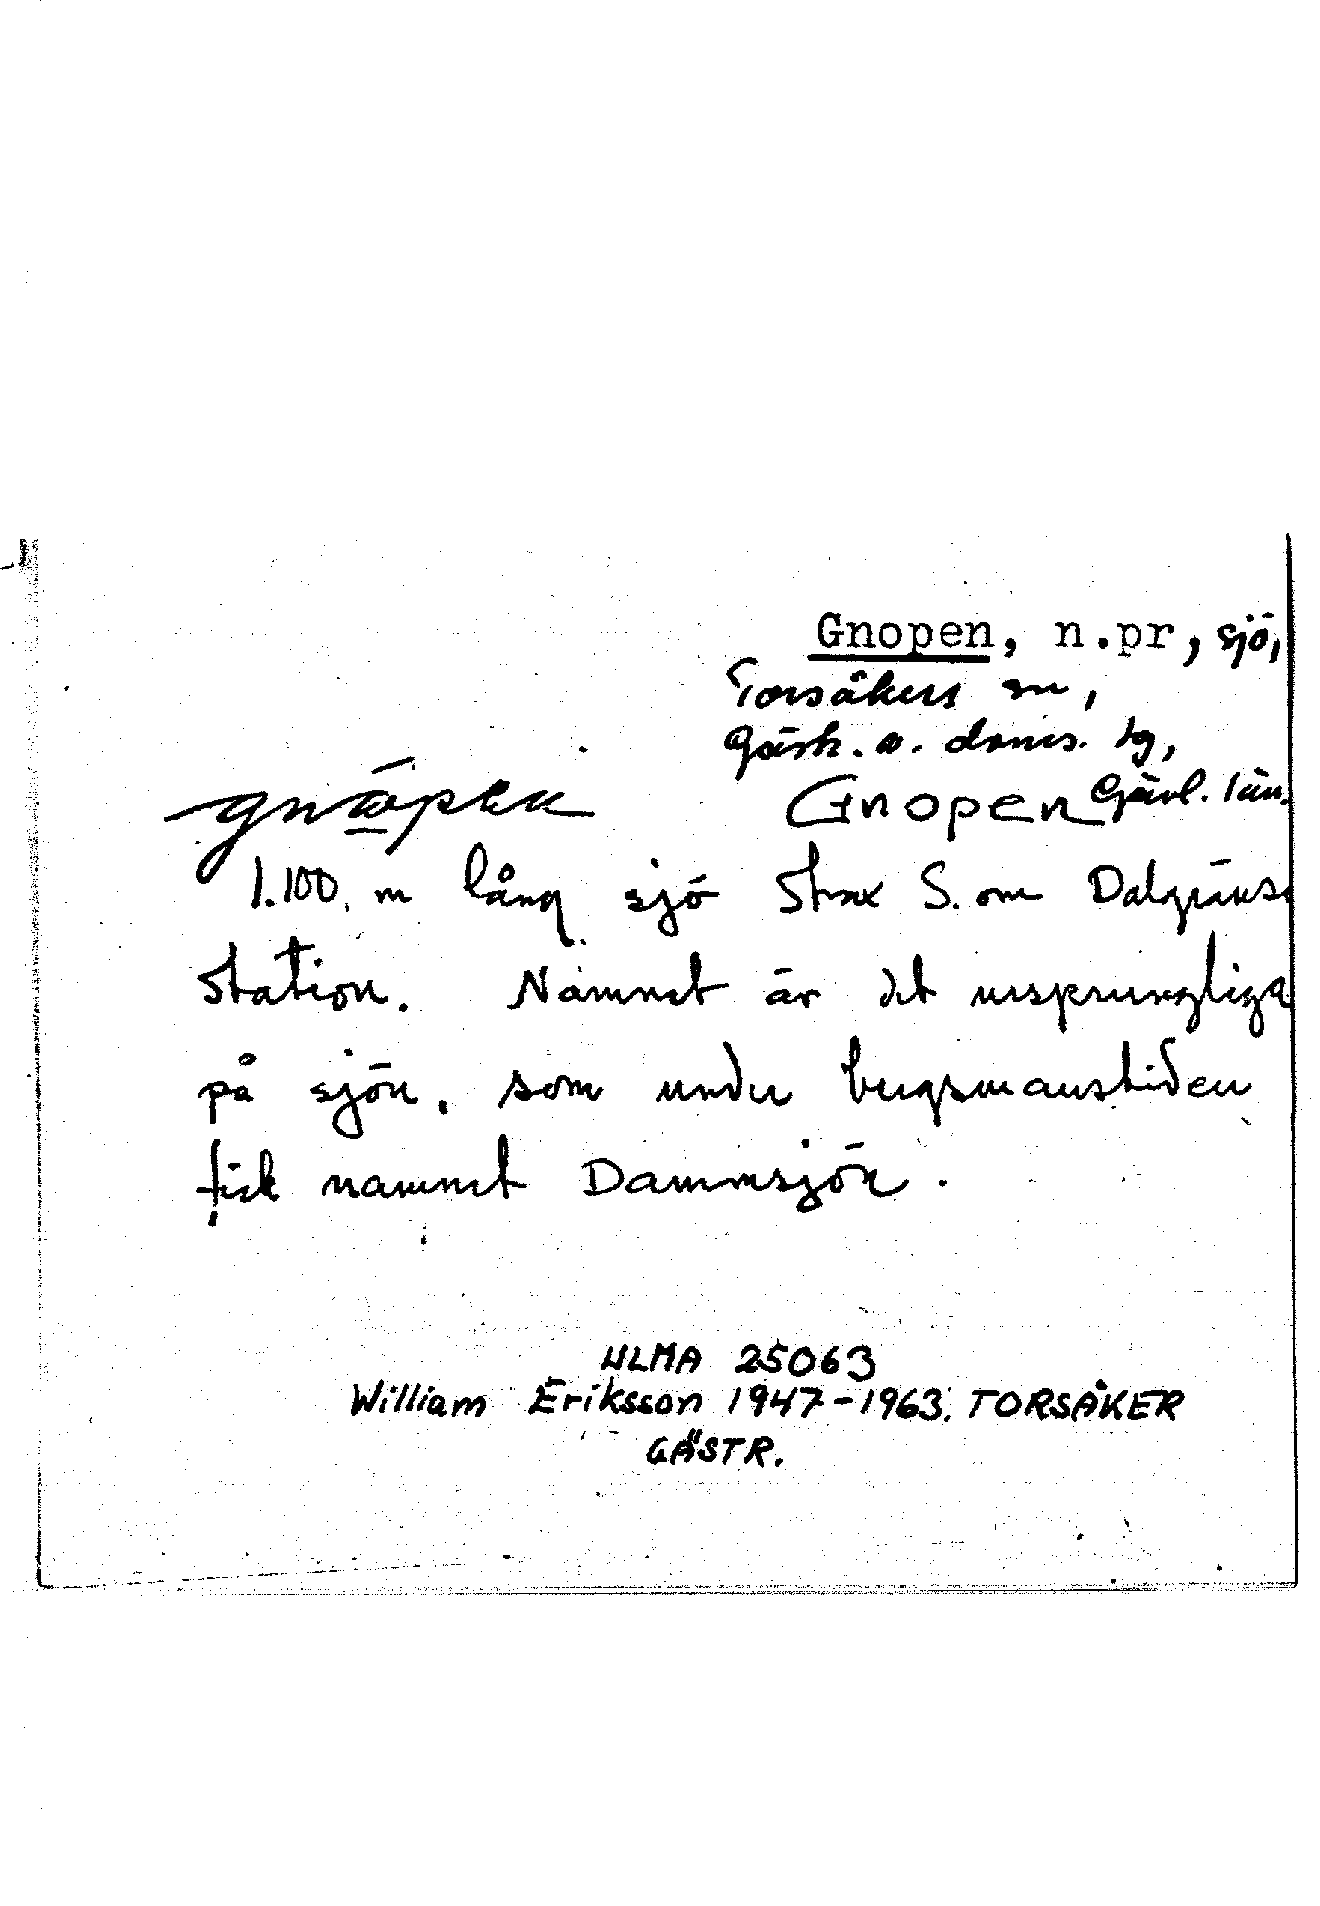 Gnopen, n.pr, sjö,
Torsåkers sn,
Gästr. ö. doms. tg,
gnöpen Gnopen Gävl. län.
1.100. m lång sjö strax S. om Dalgräns
Station. Namnet är det ursprungliga
på sjön, som under bergsmanstiden
fick namnet Dammsjön.
ULMA 25063
William Eriksson 1947-1963. TORSÅKER
GÄSTR.